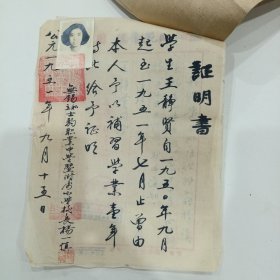 証明書
學生王靜賢自一九五〇年九月
起至一九五一年七月止曾由
本人予以補習學業壹年
特此給予証明
無錫
職業中學
校長楊
公元一九五一年九月十五日